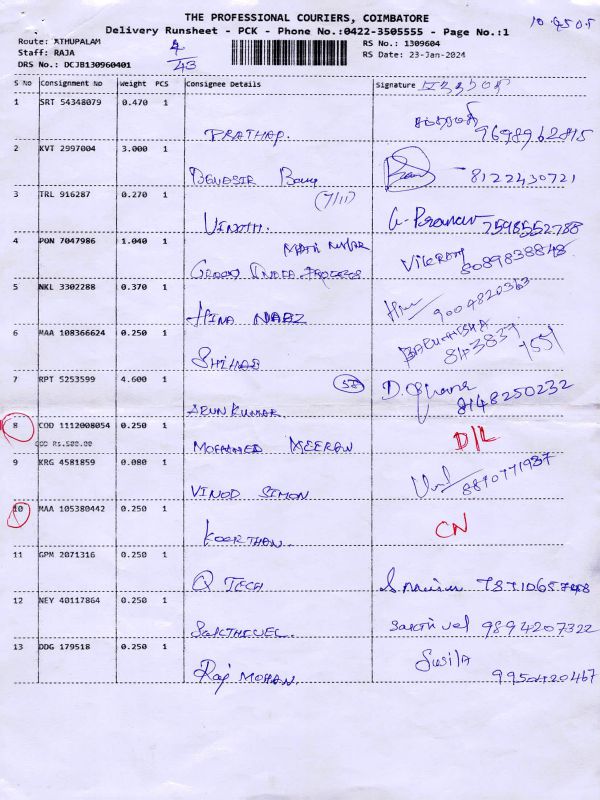 THE PROFESSIONAL COURIERS, COIMBATORE
Delivery Runsheet - PCK - Phone No.:0422-3505555 - Page No.:1
Route: ATHUPALAM
Staff: RAJA
DRS No.: DCJB130960401
4
43
RS No.: 1309604
RS Date: 23-Jan-2024
S No Consignment No Weight PCS Consignee Details Signature
1 SRT 54348079 0.470 1 PRATHAP. 9698962815
2 KVT 2997004 3.000 1 8122430721
(7/11)
3 TRL 916287 0.270 1 VINOTH. 7598552788
4 PON 7047986 1.040 1 INDIA VIKRAM 8089838848
5 NKL 3302288 0.370 1 HINA NAAZ 9004820363
6 MAA 108366624 0.250 1 SHIHAB
7 RPT 5253599 4.600 1 ARUN KUMAR 8148250232
8 COD 1112008054 0.250 1 MOHAMMED MEERAN D/L
COD Rs.500.00
9 KRG 4581859 0.080 1 VINOD SIMON 8870771937
10 MAA 105380442 0.250 1 CN
11 GPM 2071316 0.250 1 Q TECH
12 NEY 40117864 0.250 1 SAKTHIVEL. Sakthivel 9894207322
13 DDG 179518 0.250 1 Raj MOHAN. Susila